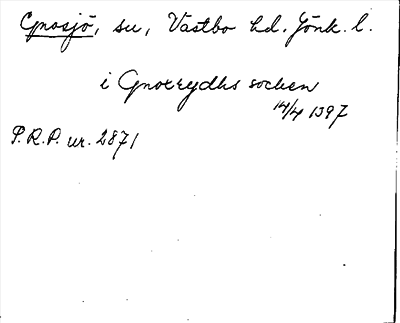 Gnosjö, sn, Västbo hd. Jönk. l.
i Gnoxrydhs socken
14/4 1397
P.R.P. nr. 2871